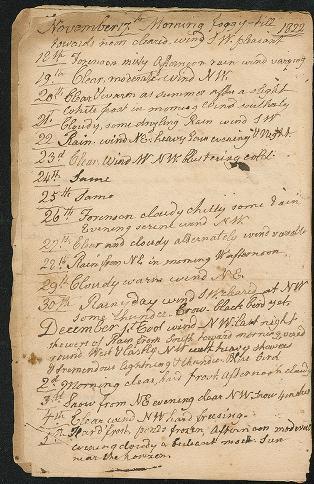 November 17th Morning foggy till 1822
towards noon cleard, wind SW pleasant
18th Forenoon misty afternoon rain wind varying
19th Clear, moderate wind N.W.
20th Clear & warm as summer after a slight
white frost in morning wind
21. Cloudy, some drizling Rain wind SW
22 Rain. wind NE. heavy rain evening & Night.
23d Clear. Wind W NW blustering cold.
24th Same
25th Same
26th Forenoon cloudy chilly some rain
Evening wind NW
27th Clear and cloudy alternately wind variable
28th Rain from NE in morning W afternoon
29th Cloudy warm wind NE.
30th Rainy day wind SW hard at NW
some thunder. Crow black bird yet
December 1st Cool wind NW. last night
showers of Rain from South toward morning
round West with heavy showers
& tremendous lightning & thunder. Blue bird
2d Morning clear, hard frost. Afternoon cloudy
3d Snow from NE evening clear NW. Snow 4 inches
4th Clear wind NW hard freesing.
5th Hard frost, ponds frozen, Afternoon moderate
evening cloudy a mock Sun
near the horizen.